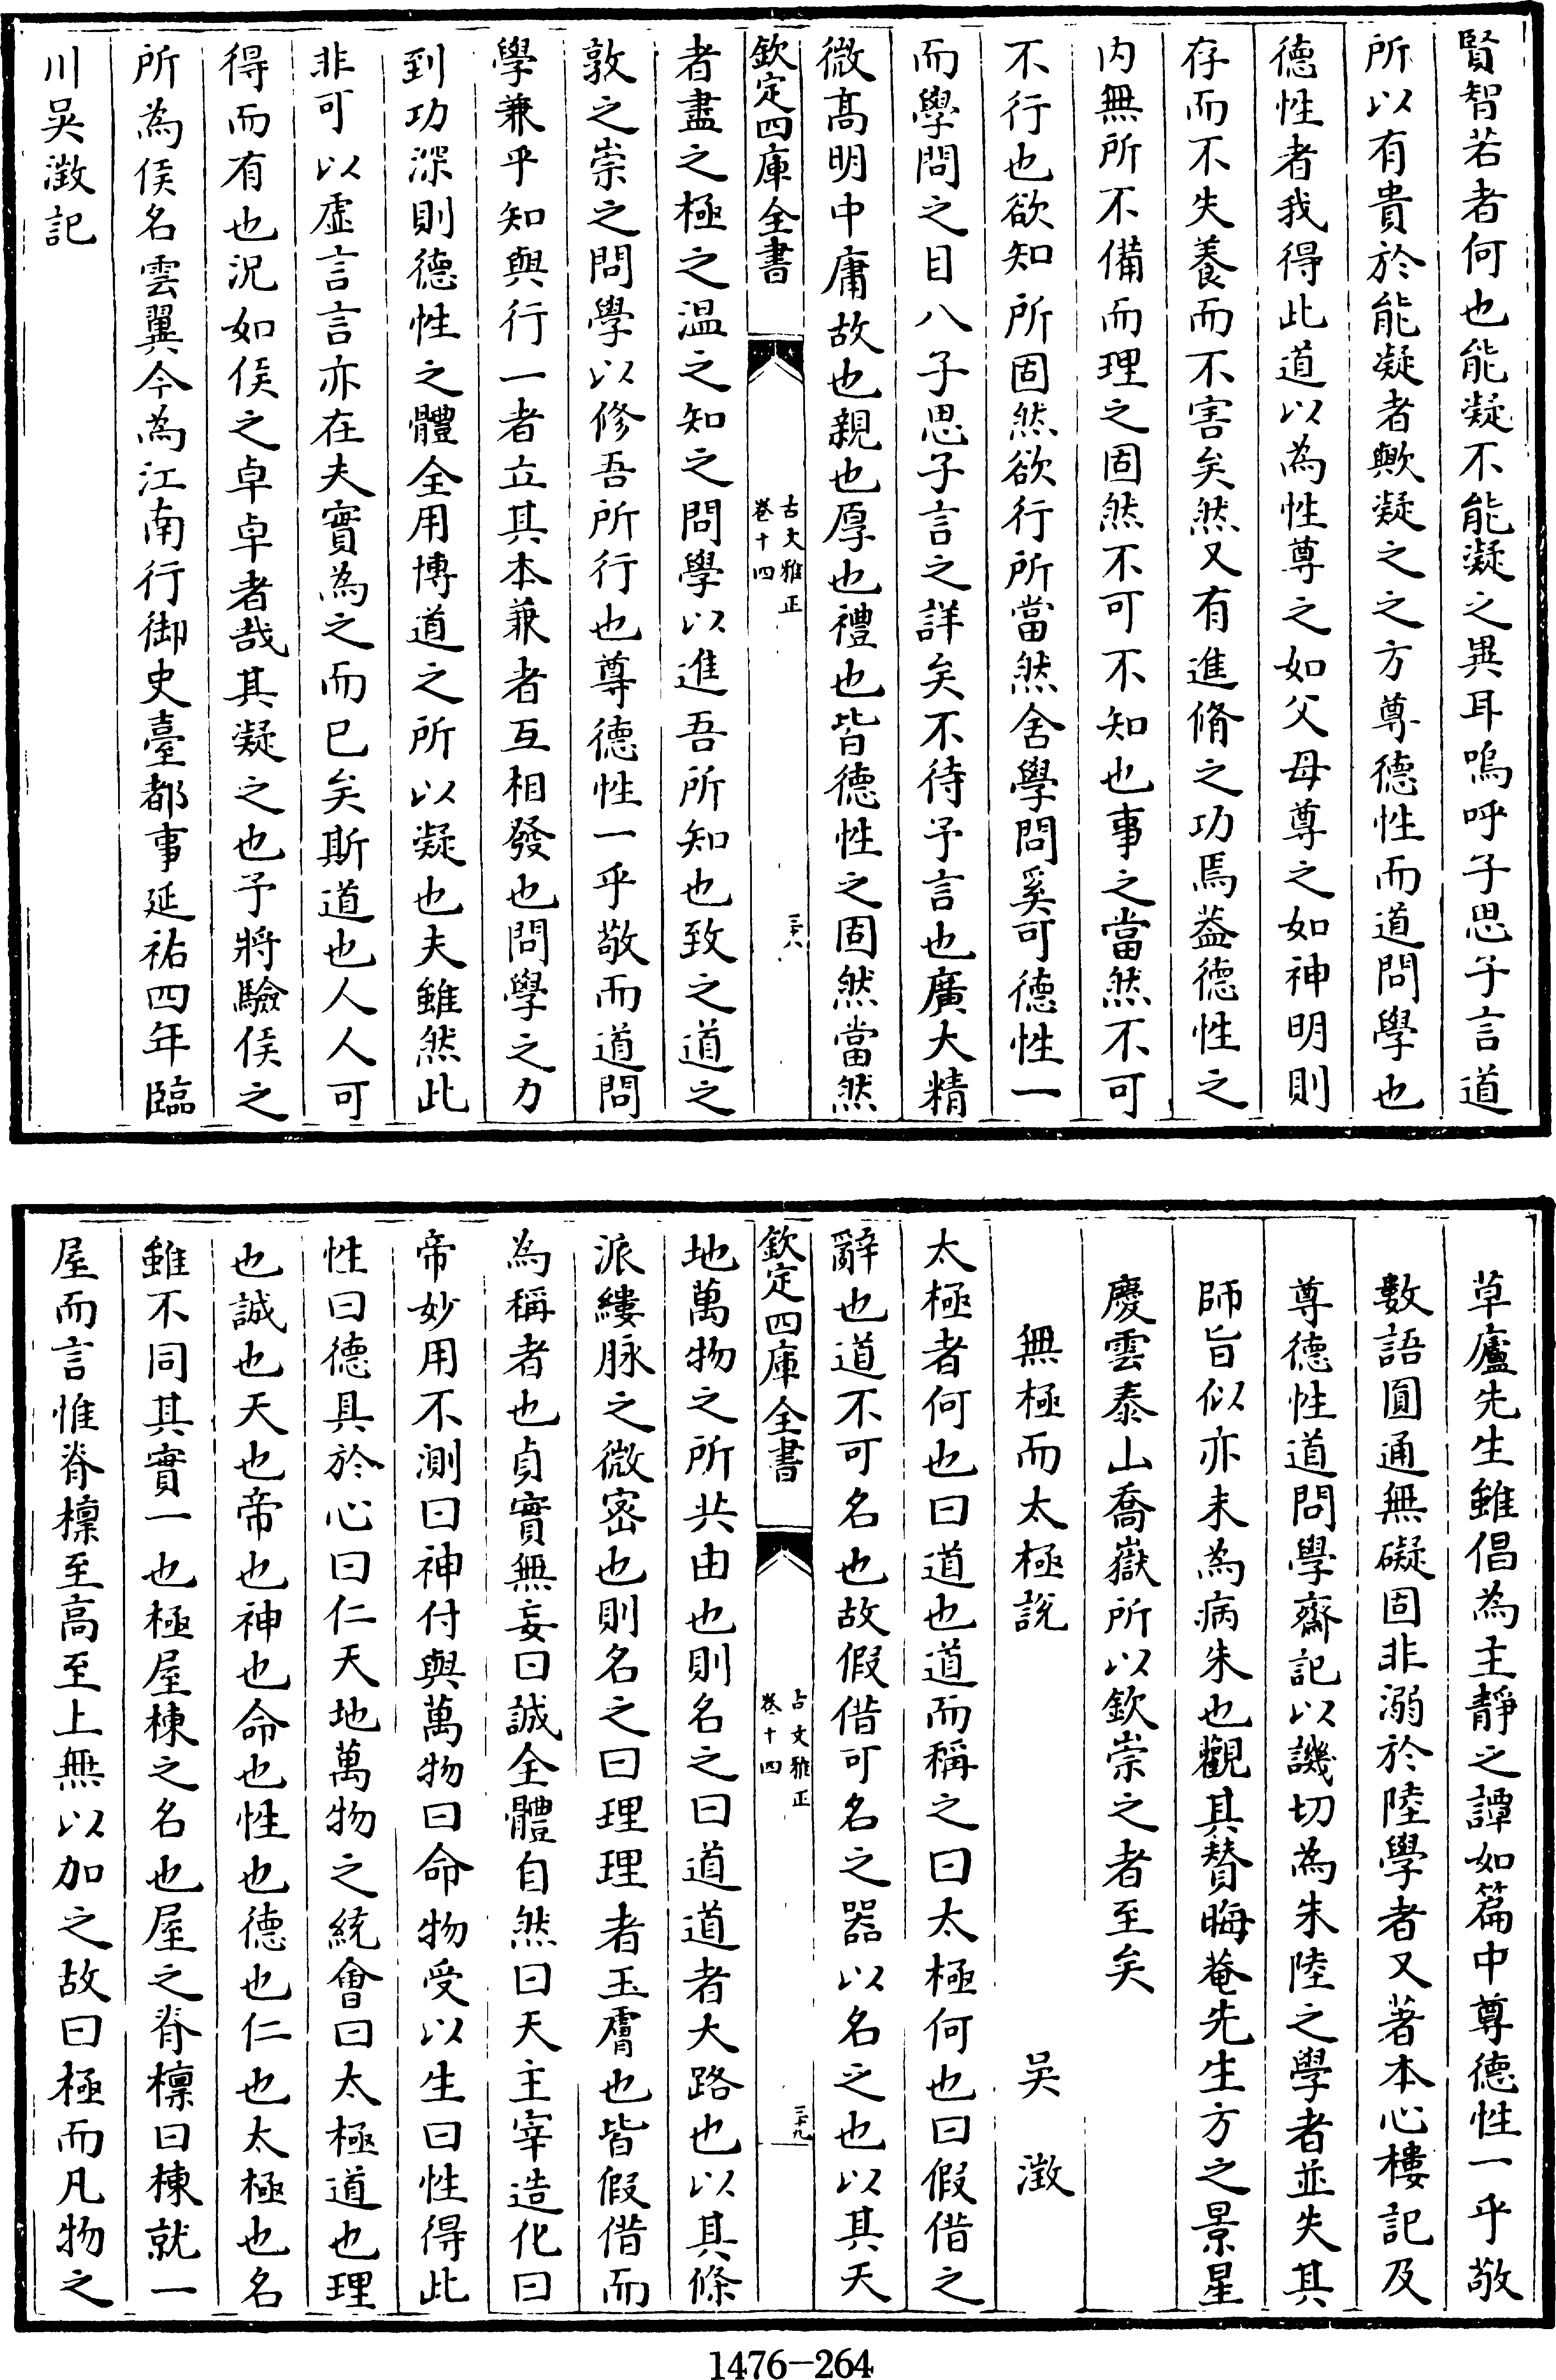 賢智若者何也能凝不能凝之異耳嗚呼子思子言道
所以有貴於能凝者歟凝之之方尊德性而道問學也
德性者我得此道以為性尊之如父母尊之如神明則
存而不失養而不害矣然又有進脩之功焉葢德性之
内無所不備而理之固然不可不知也事之當然不可
不行也欲知所固然欲行所當然舍學問奚可德性一
而學問之目八子思子言之詳矣不待予言也廣大精
微髙明中庸故也親也厚也禮也皆德性之固然當然
欽定四庫全書
古文雅正
卷十四
三十八
者盡之極之温之知之問學以進吾所知也致之道之
敦之崇之問學以修吾所行也尊德性一乎敬而道問
學兼乎知與行一者立其本兼者互相發也問學之力
到功深則德性之體全用博道之所以凝也夫雖然此
非可以虛言言亦在夫實為之而已矣斯道也人人可
得而有也況如侯之卓卓者哉其凝之也予將驗侯之
所為侯名雲翼今為江南行御史臺都事延祐四年臨
川吴澂記
草廬先生雖倡為主靜之譚如篇中尊德性一乎敬
數語圓通無礙固非溺於陸學者又著本心樓記及
尊德性道問學齋記以譏切為朱陸之學者並失其
師旨似亦未為病朱也觀其贊晦菴先生方之景星
慶雲泰山喬嶽所以欽崇之者至矣
無極而太極說
吴澂
太極者何也曰道也道而稱之曰太極何也曰假借之
辭也道不可名也故假借可名之器以名之也以其天
欽定四庫全書
古文雅正
卷十四
三十九
地萬物之所共由也則名之曰道道者大路也以其條
派縷脉之微宻也則名之曰理理者玉膚也皆假借而
為稱者也貞實無妄曰誠全體自然曰天主宰造化曰
帝妙用不測曰神付與萬物曰命物受以生曰性得此
性曰德具於心曰仁天地萬物之統會曰太極道也理
也誠也天也帝也神也命也性也德也仁也太極也名
雖不同其實一也極屋棟之名也屋之脊檩曰棟就一
屋而言惟脊檩至高至上無以加之故曰極而凡物之
1476—264